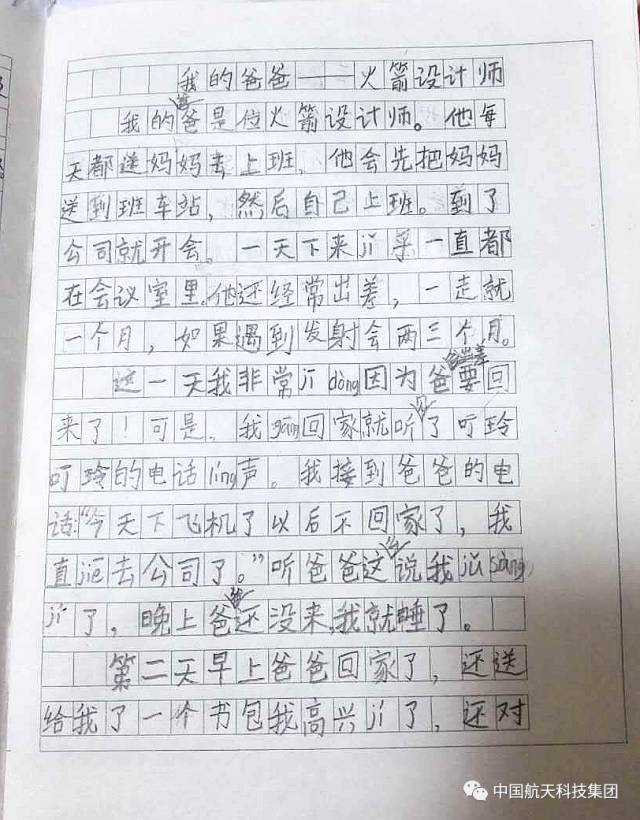 我的爸爸——火箭设计师
我的爸爸是位火箭设计师。他每
天都送妈妈去上班,他会先把妈妈
送到班车站,然后自己上班。到了
公司就开会。一天下来jī采一直都
在会议室里。他还经常出差,一走就
一个月,如果遇到发射会两三个月。
这一天我非常jī dòng因为爸爸出差要回
来了!可是,我gāng回家就听见了叮玲
叮玲的电话líng声。我接到爸爸的电
话:“今天下飞机了以后不回家了,我
直jiē去公司了。”听爸爸这么说我jǔ sàng
jí了,晚上爸爸还没来,我就睡了。
第二天早上爸爸回家了,还送
给我了一个书包我高兴jí了,还对
中国航天科技集团